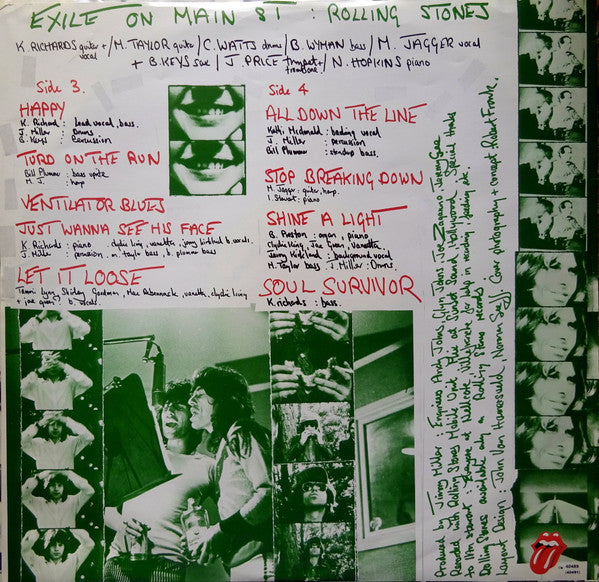 EXILE ON MAIN ST : ROLLING STONES
K. RICHARDS guitar + vocal / M. TAYLOR guitar / C. WATTS drums / B. WYMAN bass / M. JAGGER vocal
+ B. KEYS sax / J. PRICE trumpet + trombone / N. HOPKINS piano
Side 3.
HAPPY
K. Richard : lead vocal, bass.
J. Miller : Drums
B. Keys : Percussion
TURD ON THE RUN
Bill Plummer : bass upríte
M. J. : harp
VENTILATOR BLUES
JUST WANNA SEE HIS FACE
K. Richards : piano clydie king, vanetta, jerry kirkland b. vocals.
J. Miller : percussion m. taylor bass, b. plummer bass
LET IT LOOSE
Tammi Lynn, Shirley Goodman, Mac Rebennack, vanetta, clydie king
+ joe green : b. vocals
Side 4
ALL DOWN THE LINE
Kathi Mcdonald : backing vocal
J. Miller : percussion
Bill Plummer : standup bass.
STOP BREAKING DOWN
M. Jagger : guitar, harp.
I. Stewart : piano
SHINE A LIGHT
B. Preston : organ, piano
Clydie King, Joe Green, Vanetta,
Jerry Kirkland : background vocal
M. Taylor bass J. Miller : Drums
SOUL SURVIVOR
K. richards : bass.
Produced by Jimmy Miller : Engineers Andy Johns, Glyn Johns, Joe Zagarino, Jeremy Gee
Recorded with Rolling Stones Mobile Unit. Mix at Sunset Sound, Hollywood. Special thanks
to Ian Stewart : for help in
Rolling Stones available only on Rolling Stones records
Layout Design : John Van Hamersveld, Norman Seeff, Cover photography + concept Robert Frank.